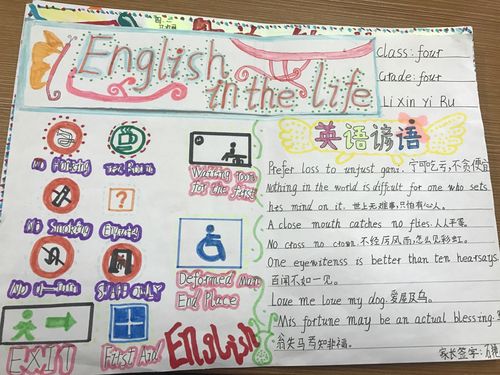 English
in the life
Class: four
Grade: four
Li Xin Yi Ru
英语谚语
No Parking
Tea Room
No Smoking
Waiting room
for one first
Deformed man
End Place
STAFF ONLY
EXIT
First Aid
English
Prefer loss to unjust gain. 宁可吃亏,不贪便宜
Nothing in the world is difficult for one who sets
his mind on it. 世上无难事,只怕有心人。
A close mouth catches no flies. 人人平等。
No cross no crown. 不经历风雨,怎么见彩虹。
One eyewitness is better than ten hearsays.
百闻不如一见。
Love me love my dog. 爱屋及乌。
Mis fortune may be an actual blessing.
翁失马焉知非福。
家长签字: